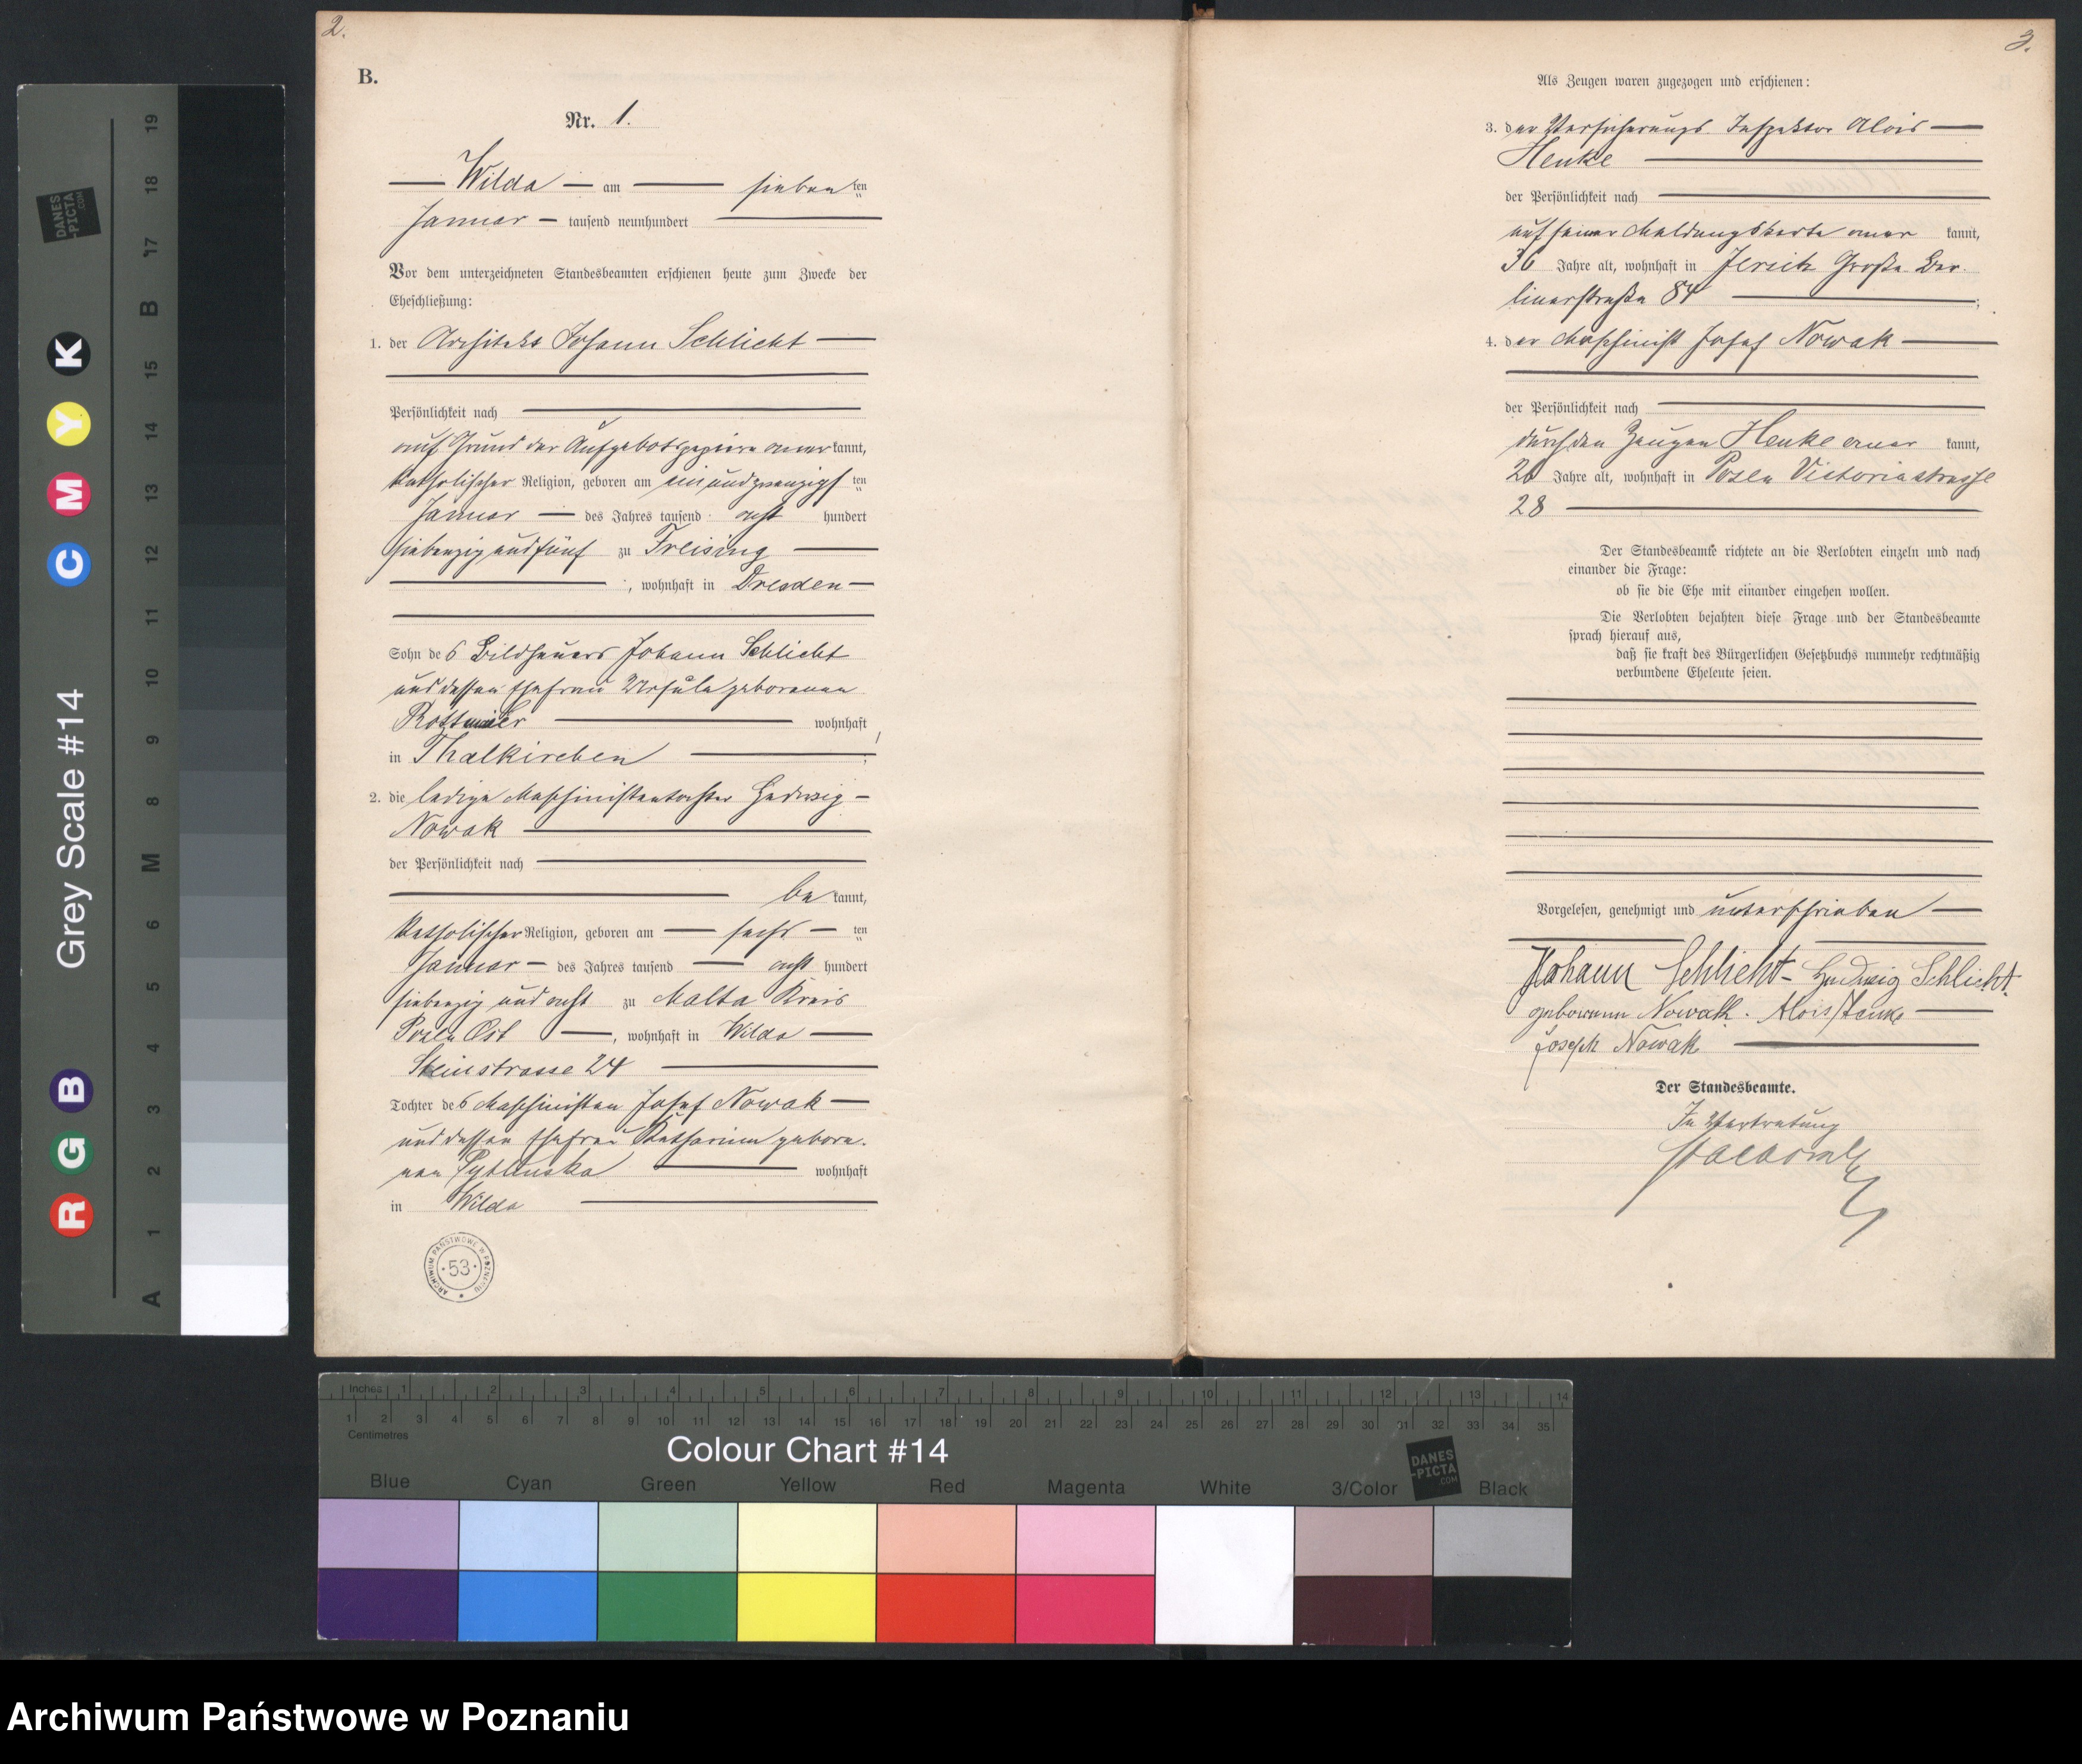 2.
B.
Nr. 1.
Wilda am sieben ten
Januar tausend neunhundert
Vor dem unterzeichneten Standesbeamten erschienen heute zum Zwecke der
Eheschließung:
1. der Architekt Johann Schlicht
Persönlichkeit nach
auf Grund der Aufgebotspapiere aner kannt,
katholischer Religion, geboren am einundzwanzigs ten
Januar des Jahres tausend acht hundert
siebenzig und fünf zu Freising
, wohnhaft in Dresden
Sohn des Bildhauers Johann Schlicht
und dessen Ehefrau Ursula geborenen
Rottmaier wohnhaft
in Thalkirchen
2. die ledige Maschinistentochter Hedwig
Nowak
der Persönlichkeit nach
be kannt,
katholischer Religion, geboren am sechs ten
Januar des Jahres tausend acht hundert
siebenzig und acht zu Malta Kreis
Posen Ost , wohnhaft in Wilda
Steinstrasse 24
Tochter des Maschinisten Josef Nowak
und dessen Ehefrau Katharina gebore-
nen wohnhaft
in Wilda
ARCHIWUM PAŃSTWOWE W POZNANIU
53
3.
Als Zeugen waren zugezogen und erschienen:
3. der Versicherungs-Inspektor Alois
Henke
der Persönlichkeit nach
auf seiner Meldungskarte aner kannt,
36 Jahre alt, wohnhaft in Jersitz Große Ber-
linerstraße 84 ;
4. der Maschinist Josef Nowak
der Persönlichkeit nach
durch den Zeugen Henke aner kannt,
Jahre alt, wohnhaft in Posen Victoriastrasse
28
Der Standesbeamte richtete an die Verlobten einzeln und nach
einander die Frage:
ob sie die Ehe mit einander eingehen wollen.
Die Verlobten bejahten diese Frage und der Standesbeamte
sprach hierauf aus,
daß sie kraft des Bürgerlichen Gesetzbuchs nunmehr rechtmäßig
verbundene Eheleute seien.
Vorgelesen, genehmigt und unterschrieben
Johann Schlicht - Hedwig Schlicht
geborenen Nowak. Alois Henke
Joseph Nowak
Der Standesbeamte.
In Vertretung
Grey Scale #14
R G B C M Y K
A 1 2 3 4 5 6 M 8 9 10 11 12 13 14 15 B 17 18 19
DANES-PICTA.COM
Inches 1 2 3 4 5 6 7 8 9 10 11 12 13 14
1 2 3 4 5 6 7 8 9 10 11 12 13 14 15 16 17 18 19 20 21 22 23 24 25 26 27 28 29 30 31 32 33 34 35
Centimetres
Colour Chart #14
DANES-PICTA.COM
Blue Cyan Green Yellow Red Magenta White 3/Color Black
Archiwum Państwowe w Poznaniu